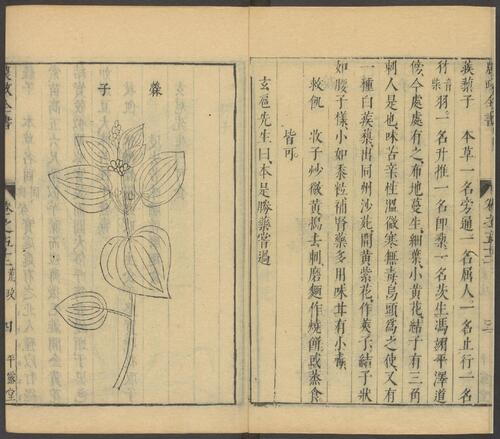 蒺藜子 本草一名旁通一名屈人一名止行一名
豺羽一名升推一名即藜一名茨生馮翊平澤道
傍今處處有之布地蔓生細葉小黃花結子有三角
刺人是也味苦辛性溫微寒無毒烏頭為之使又有
一種白蒺藜出同州沙苑開黃紫花作莢子結子狀
如腰子樣小如黍粒補腎藥多用味甘有小毒
救飢 收子炒微黃搗去刺磨麵作燒餅或蒸食
皆可
玄扈先生曰本是勝藥嘗過
子
農政全書
卷之五十二 荒政 四 平露堂